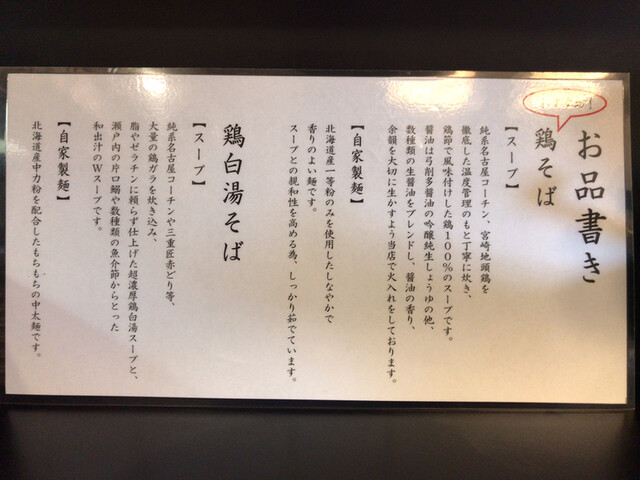 お品書き
鶏そば
【スープ】
純系名古屋コーチン、宮崎地頭鶏を
徹底した温度管理のもと丁寧に炊き、
鶏節で風味付けした鶏100%のスープです。
醤油は弓削多醤油の吟醸純生しょうゆの他、
数種類の生醤油をブレンドし、醤油の香り、
余韻を大切に生かすよう当店で火入れをしております。
【自家製麺】
北海道産一等粉のみを使用したしなやかで
香りのよい麺です。
スープとの親和性を高める為、しっかり茹でています。
鶏白湯そば
【スープ】
純系名古屋コーチンや三重匠赤どり等、
大量の鶏ガラを炊き込み、
脂やゼラチンに頼らず仕上げた超濃厚鶏白湯スープと、
瀬戸内の片口鰯や数種類の魚介節からとった
和出汁のWスープです。
【自家製麺】
北海道産中力粉を配合したもちもちの中太麺です。